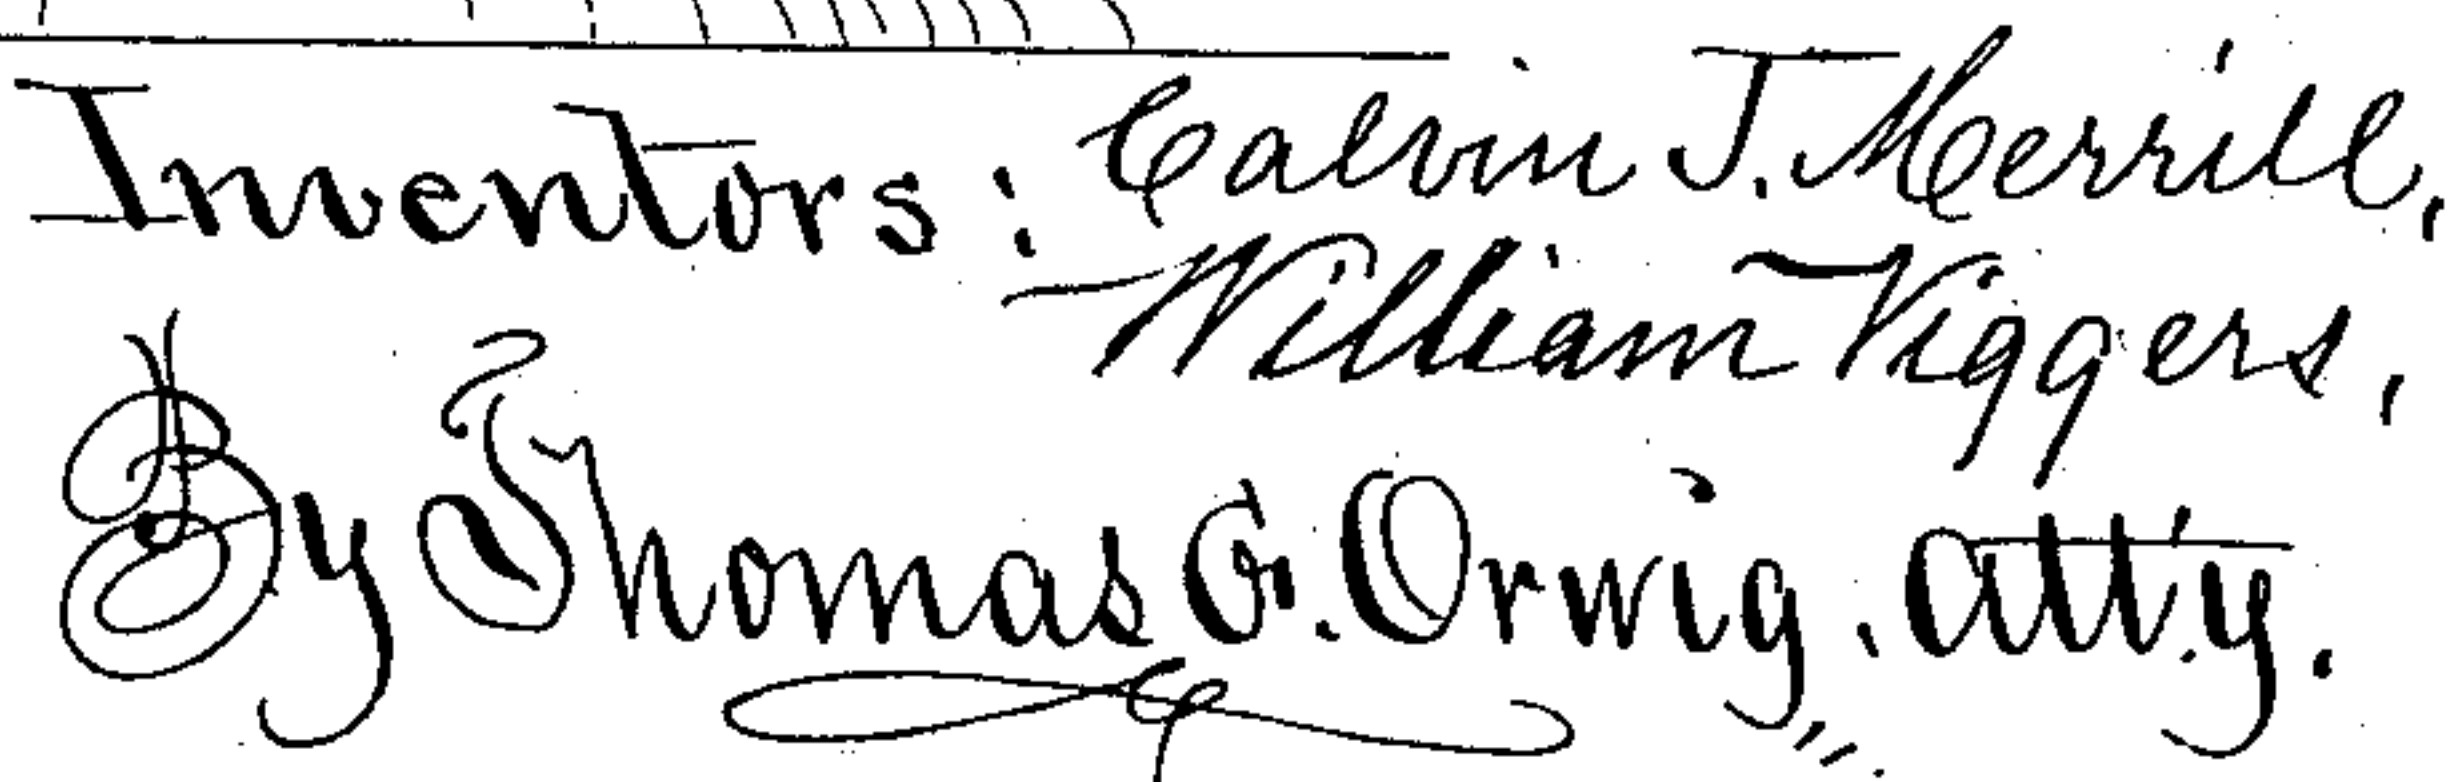 Inventors: Calvin J. Merrill,
William Viggers,
By Thomas G. Orwig, att'y.